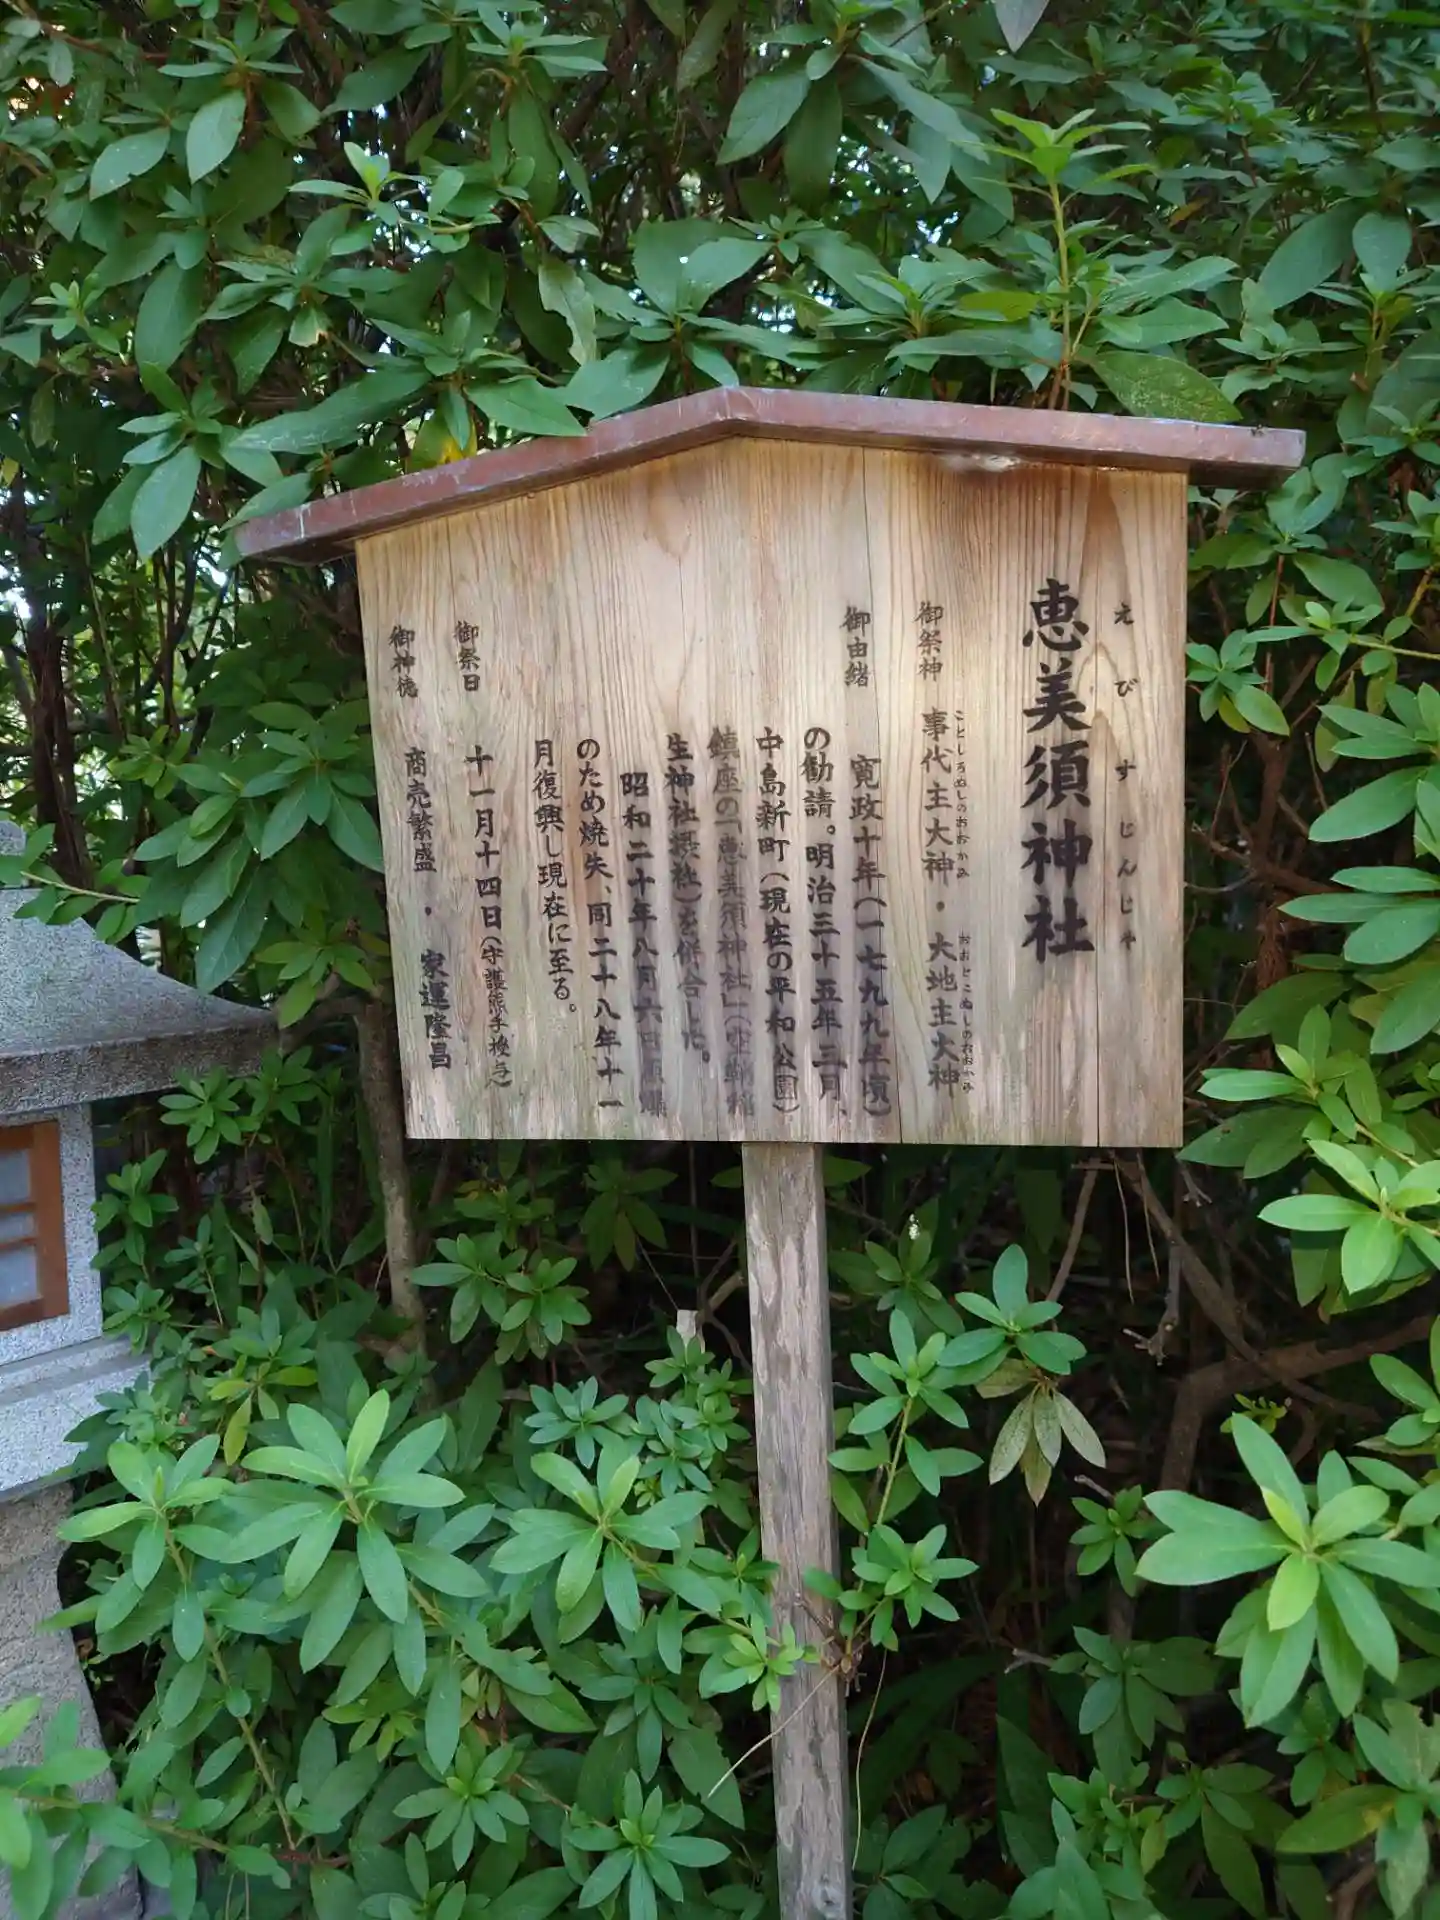 えびすじんじゃ
恵美須神社
御祭神 事代主大神・大地主大神
ことしろぬしのおおかみ おおとこぬしのおおかみ
御由緒 寛政十年(一七九九年頃)
の勧請。明治三十五年三月、
中島新町(現在の平和公園)
鎮座の「恵美須神社」(空鞘稲
生神社摂社)を併合した。
昭和二十年八月六日原爆
のため焼失、同二十八年十一
月復興し現在に至る。
御祭日 十一月十四日(守護熊手授与)
御神徳 商売繁盛・家運隆昌